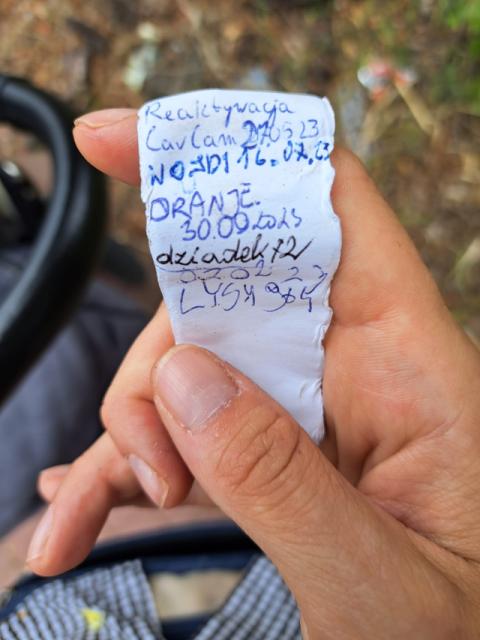 Reaktywacja
CavCam 270523
WOJDI 16.07.23
ORANJE.
30.09.2023
dziadek12
LYSY